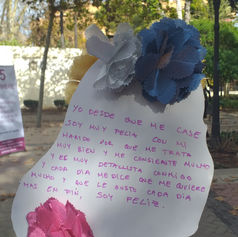 5
YO DESDE QUE ME CASE
SOY MUY FELIZ CON MI
MARIDO POR QUE ME TRATA
MUY BIEN Y ME CONSIENTE MUCHO
Y ES MUY DETALLISTA CONMIGO
Y CADA DIA ME DICE QUE ME QUIERE
MUCHO Y QUE LE GUSTO CADA DIA
MAS EN FIN, SOY FELIZ.